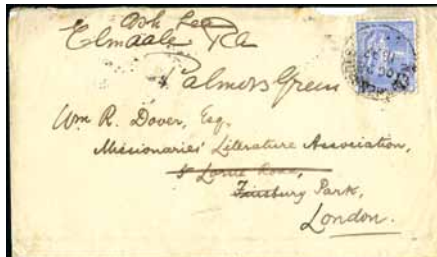 Ash Lea
Elmdale Rd
Palmers Green
Wm R. Dover, Esq.
Missionaries' Literature Association,
8 Lorne Road,
Finsbury Park,
London.